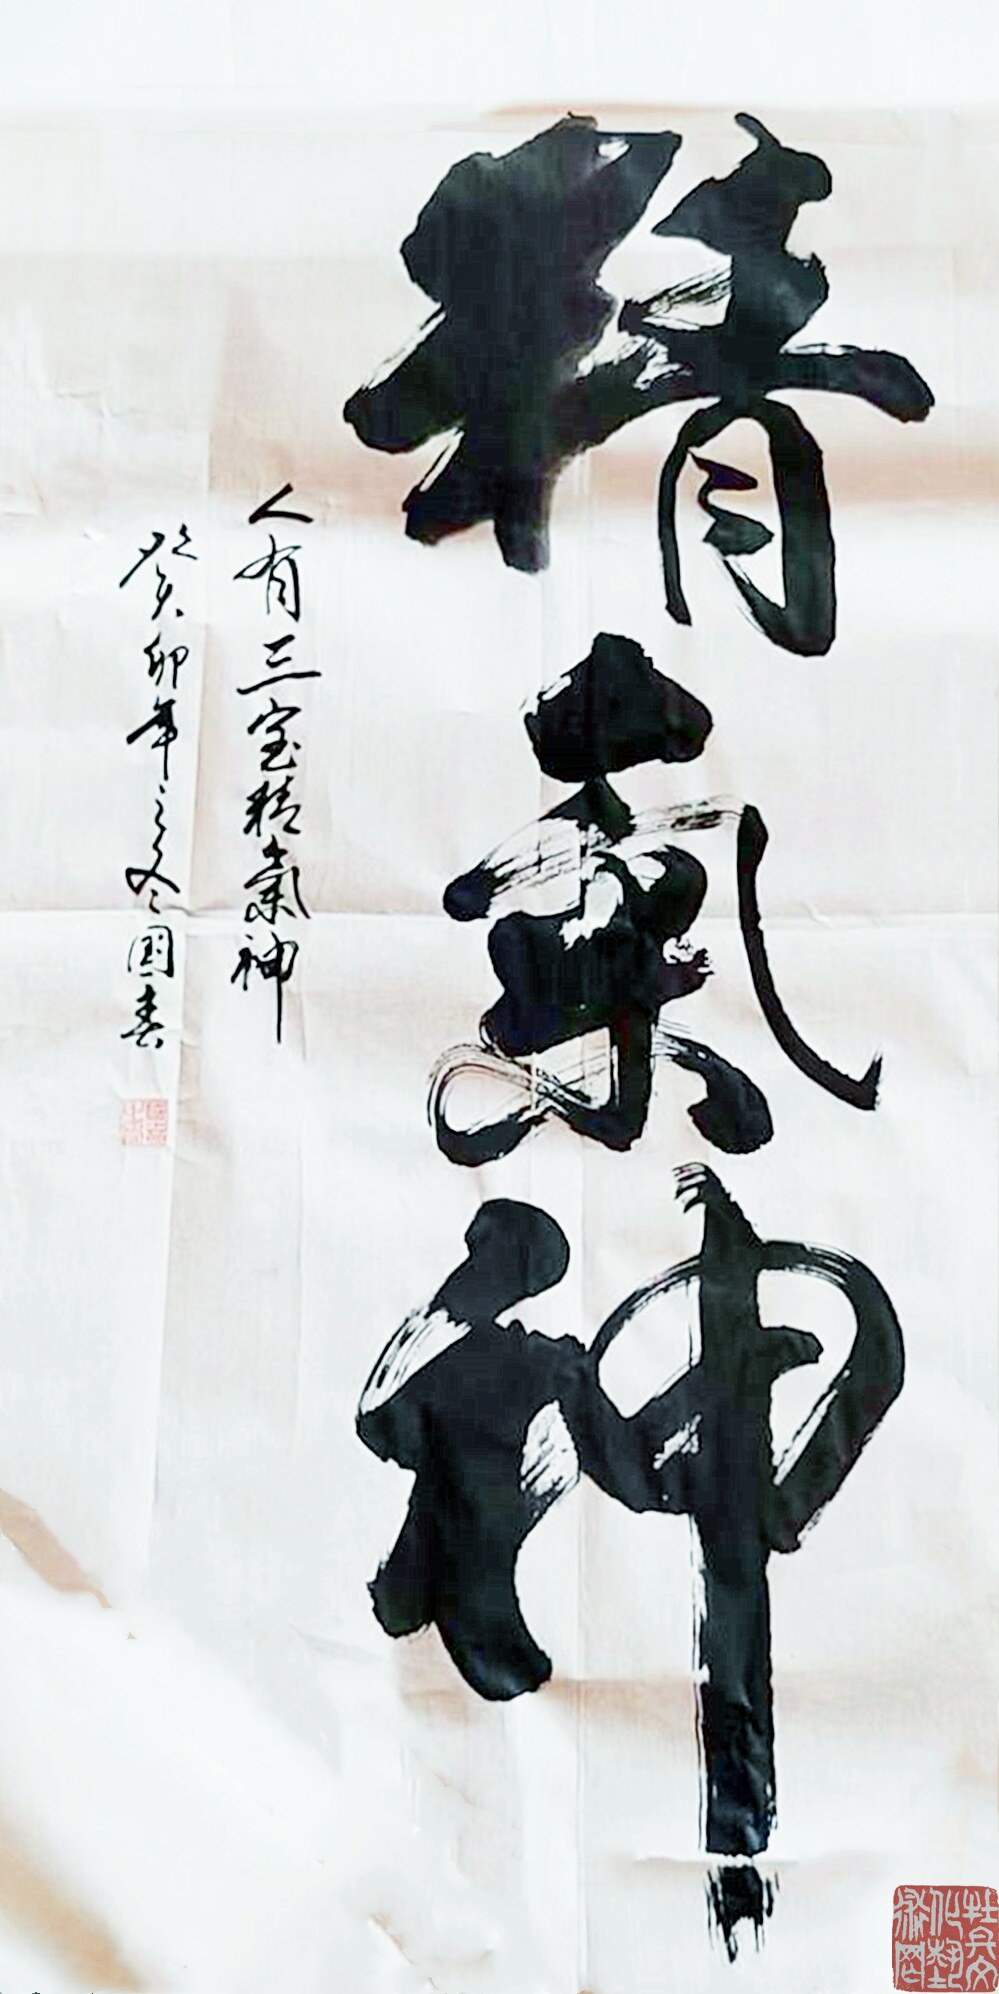 精氣神
人有三宝精氣神
癸卯年之冬国春